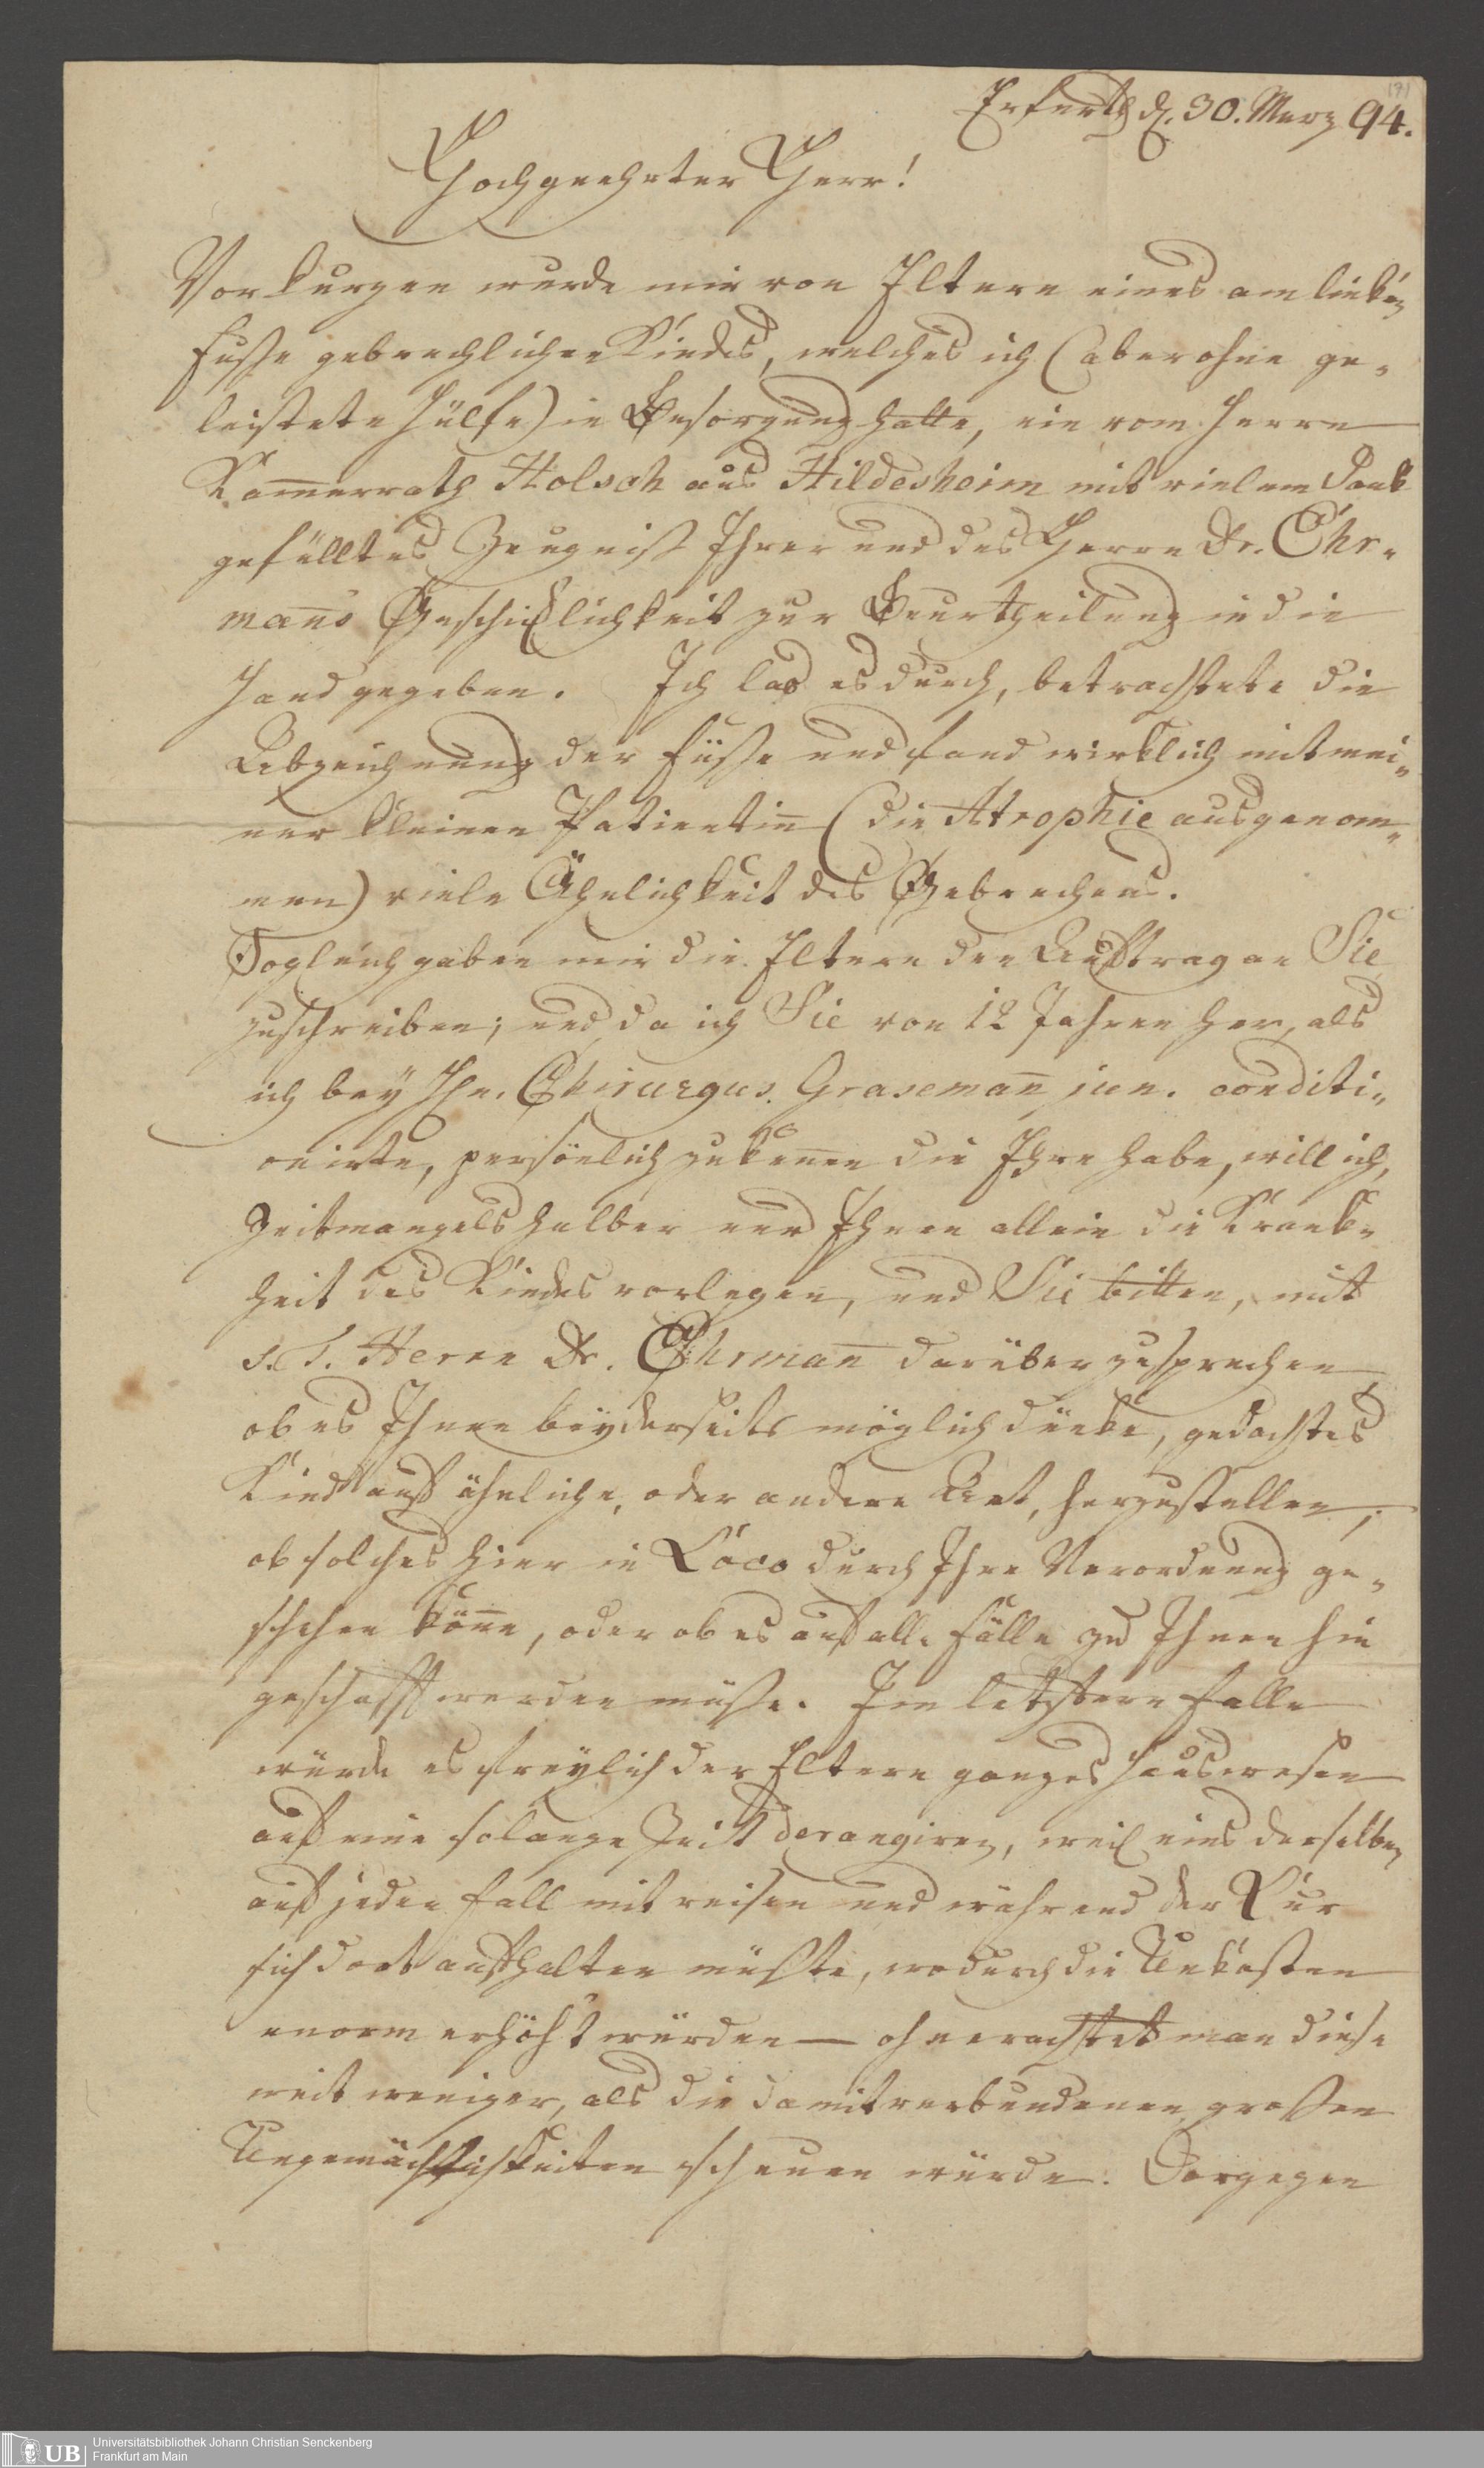 (7)
Erfurth d. 30. Merz 94.
Hochgeehrter Herr!
Vor kurzen wurde mir von Eltern eines am linken
Fuße gebrechlichen Kindes, welches ich (aber ohne ge-
leistete Hülfe) in Besorgung hatte, ein vom Herrn
Kam̄errath Holsch aus Hildesheim mit vielem Dank
gefülltes Zeugniß Ihrer und des Herrn Dr. Ehr-
man̄s Geschicklichkeit zur Beurtheilung in die
Hand gegeben. Ich las es durch, betrachtete die
Abzeichnung der Füße und fand wirklich mit mei-
ner kleinen Patientin̄ (die Atrophie ausgenom-
men) viele Ähnlichkeit des Gebrechens.
Sogleich gaben mir die Eltern den Auftrag an Sie
zuschreiben; und da ich Sie von 12 Jahren her, als
ich bey Hn. Chirurgus Graseman̄ jun. conditi-
onirte, persönlich zu ken̄en die Ehre habe, will ich,
Zeitmangels halber nur Ihnen allein die Krank-
heit des Kindes vorlegen, und Sie bitten, mit
s. T. Herrn Dr. Ehrman̄ darüber zusprechen,
ob es Ihnen beyderseits möglich dünke, gedachtes
Kind auf ähnliche, oder andere Art, herzustellen;
ob solches hier in Loco durch Ihre Verordnung ge-
schehen kön̄e, oder ob es auf alle Fälle zu Ihnen hin
geschafft werden müße. Im letztern Falle
würde es freylich der Eltern ganzes Hauswesen
auf eine solange Zeit derangiren, weil eins derselben
auf jeden Fall mit reisen und während der Kur
sich dort aufhalten müßte, wodurch die Unkosten
enorm erhöht würden — ohnerachtet man diese
weit weniger, als die damit verbundenen großen
Ungemächlichkeiten scheuen würde. Dargegen
UB
Universitätsbibliothek Johann Christian Senckenberg
Frankfurt am Main